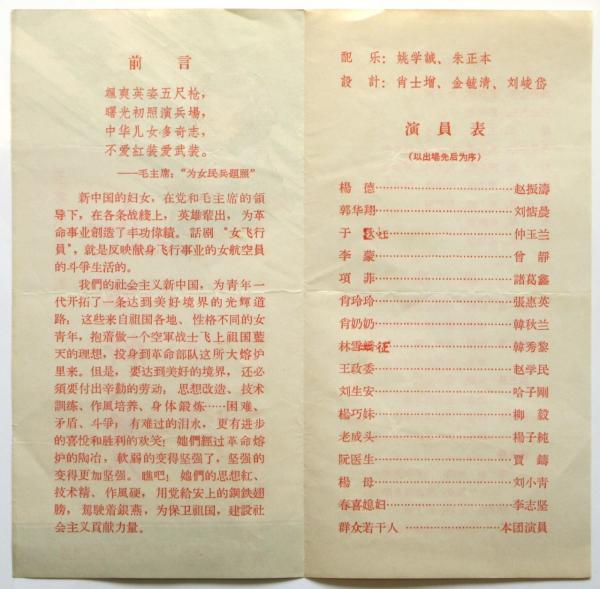 前言
颯爽英姿五尺枪，
曙光初照演兵場，
中华儿女多奇志，
不爱紅装爱武装。
——毛主席：“为女民兵題照”
新中国的妇女，在党和毛主席的領
导下，在各条战綫上，英雄辈出，为革
命事业創造了丰功偉績。話剧“女飞行
員”，就是反映献身飞行事业的女航空員
的斗爭生活的。
我們的社会主义新中国，为青年一
代开拓了一条达到美好境界的光輝道
路；这些来自祖国各地、性格不同的女
青年，抱着做一个空軍战士飞上祖国藍
天的理想，投身到革命部队这所大熔炉
里来。但是，要达到美好的境界，还必
須要付出辛勤的劳动；思想改造、技术
訓練、作風培养、身体鍛炼……困难、
矛盾、斗爭；有难过的泪水，更有进步
的喜悅和胜利的欢笑；她們經过革命熔
炉的陶冶，軟弱的变得坚强了，坚强的
变得更加坚强。瞧吧；她們的思想紅、
技术精、作風硬，用党給安上的鋼鉄翅
膀，駕駛着銀燕，为保卫祖国，建設社
会主义貢献力量。
配乐：姚学誠、朱正本
設計：肖士增、金毓清、刘峻岱
演員表
（以出場先后为序）
楊德……赵振濤
郭华翔……刘惦晨
于……仲玉兰
李蒙……曾靜
項菲……諸葛鑫
肖玲玲……張惠英
肖奶奶……韓秋兰
林雪征……韓秀黎
王政委……赵学民
刘生安……哈子剛
楊巧妹……柳毅
老成头……楊子純
阮医生……賈鑄
楊母……刘小青
春喜媳妇……李志坚
群众若干人……本团演員